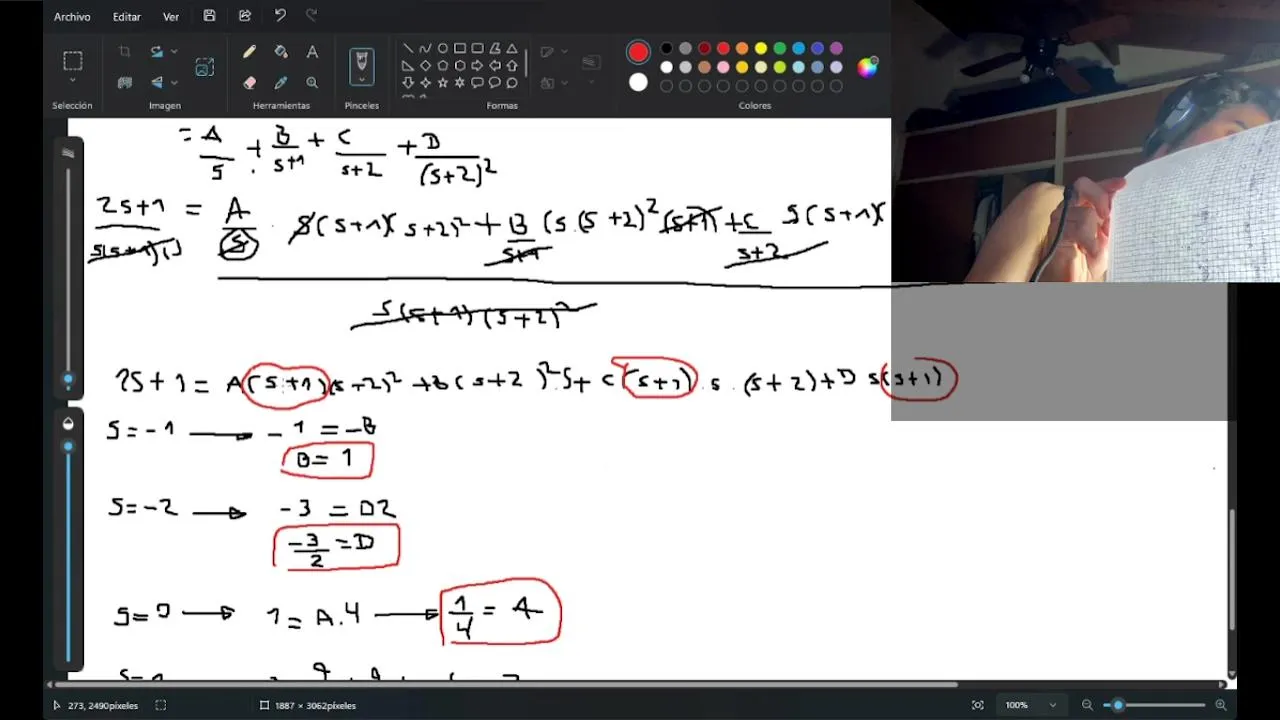 Archivo Editar Ver
Selección Imagen Herramientas Pinceles Formas Colores
= A/s + B/s+1 + C/s+2 + D/(s+2)²
2s+1 = A/s · s(s+1)(s+2)² + B/s+1 (s.(s+2)²(s+1) + C/s+2 s(s+1)(
s(s+1)(s+2)²
2s+1 = A(s+1)(s+2)² + B(s+2)².s + C(s+1).s.(s+2) + D s(s+1)
s=-1 → -1 = -B
B= 1
s=-2 → -3 = D2
-3/2 = D
s=0 → 1 = A.4 → 1/4 = A
273, 2490píxeles 1887 × 3062píxeles 100%